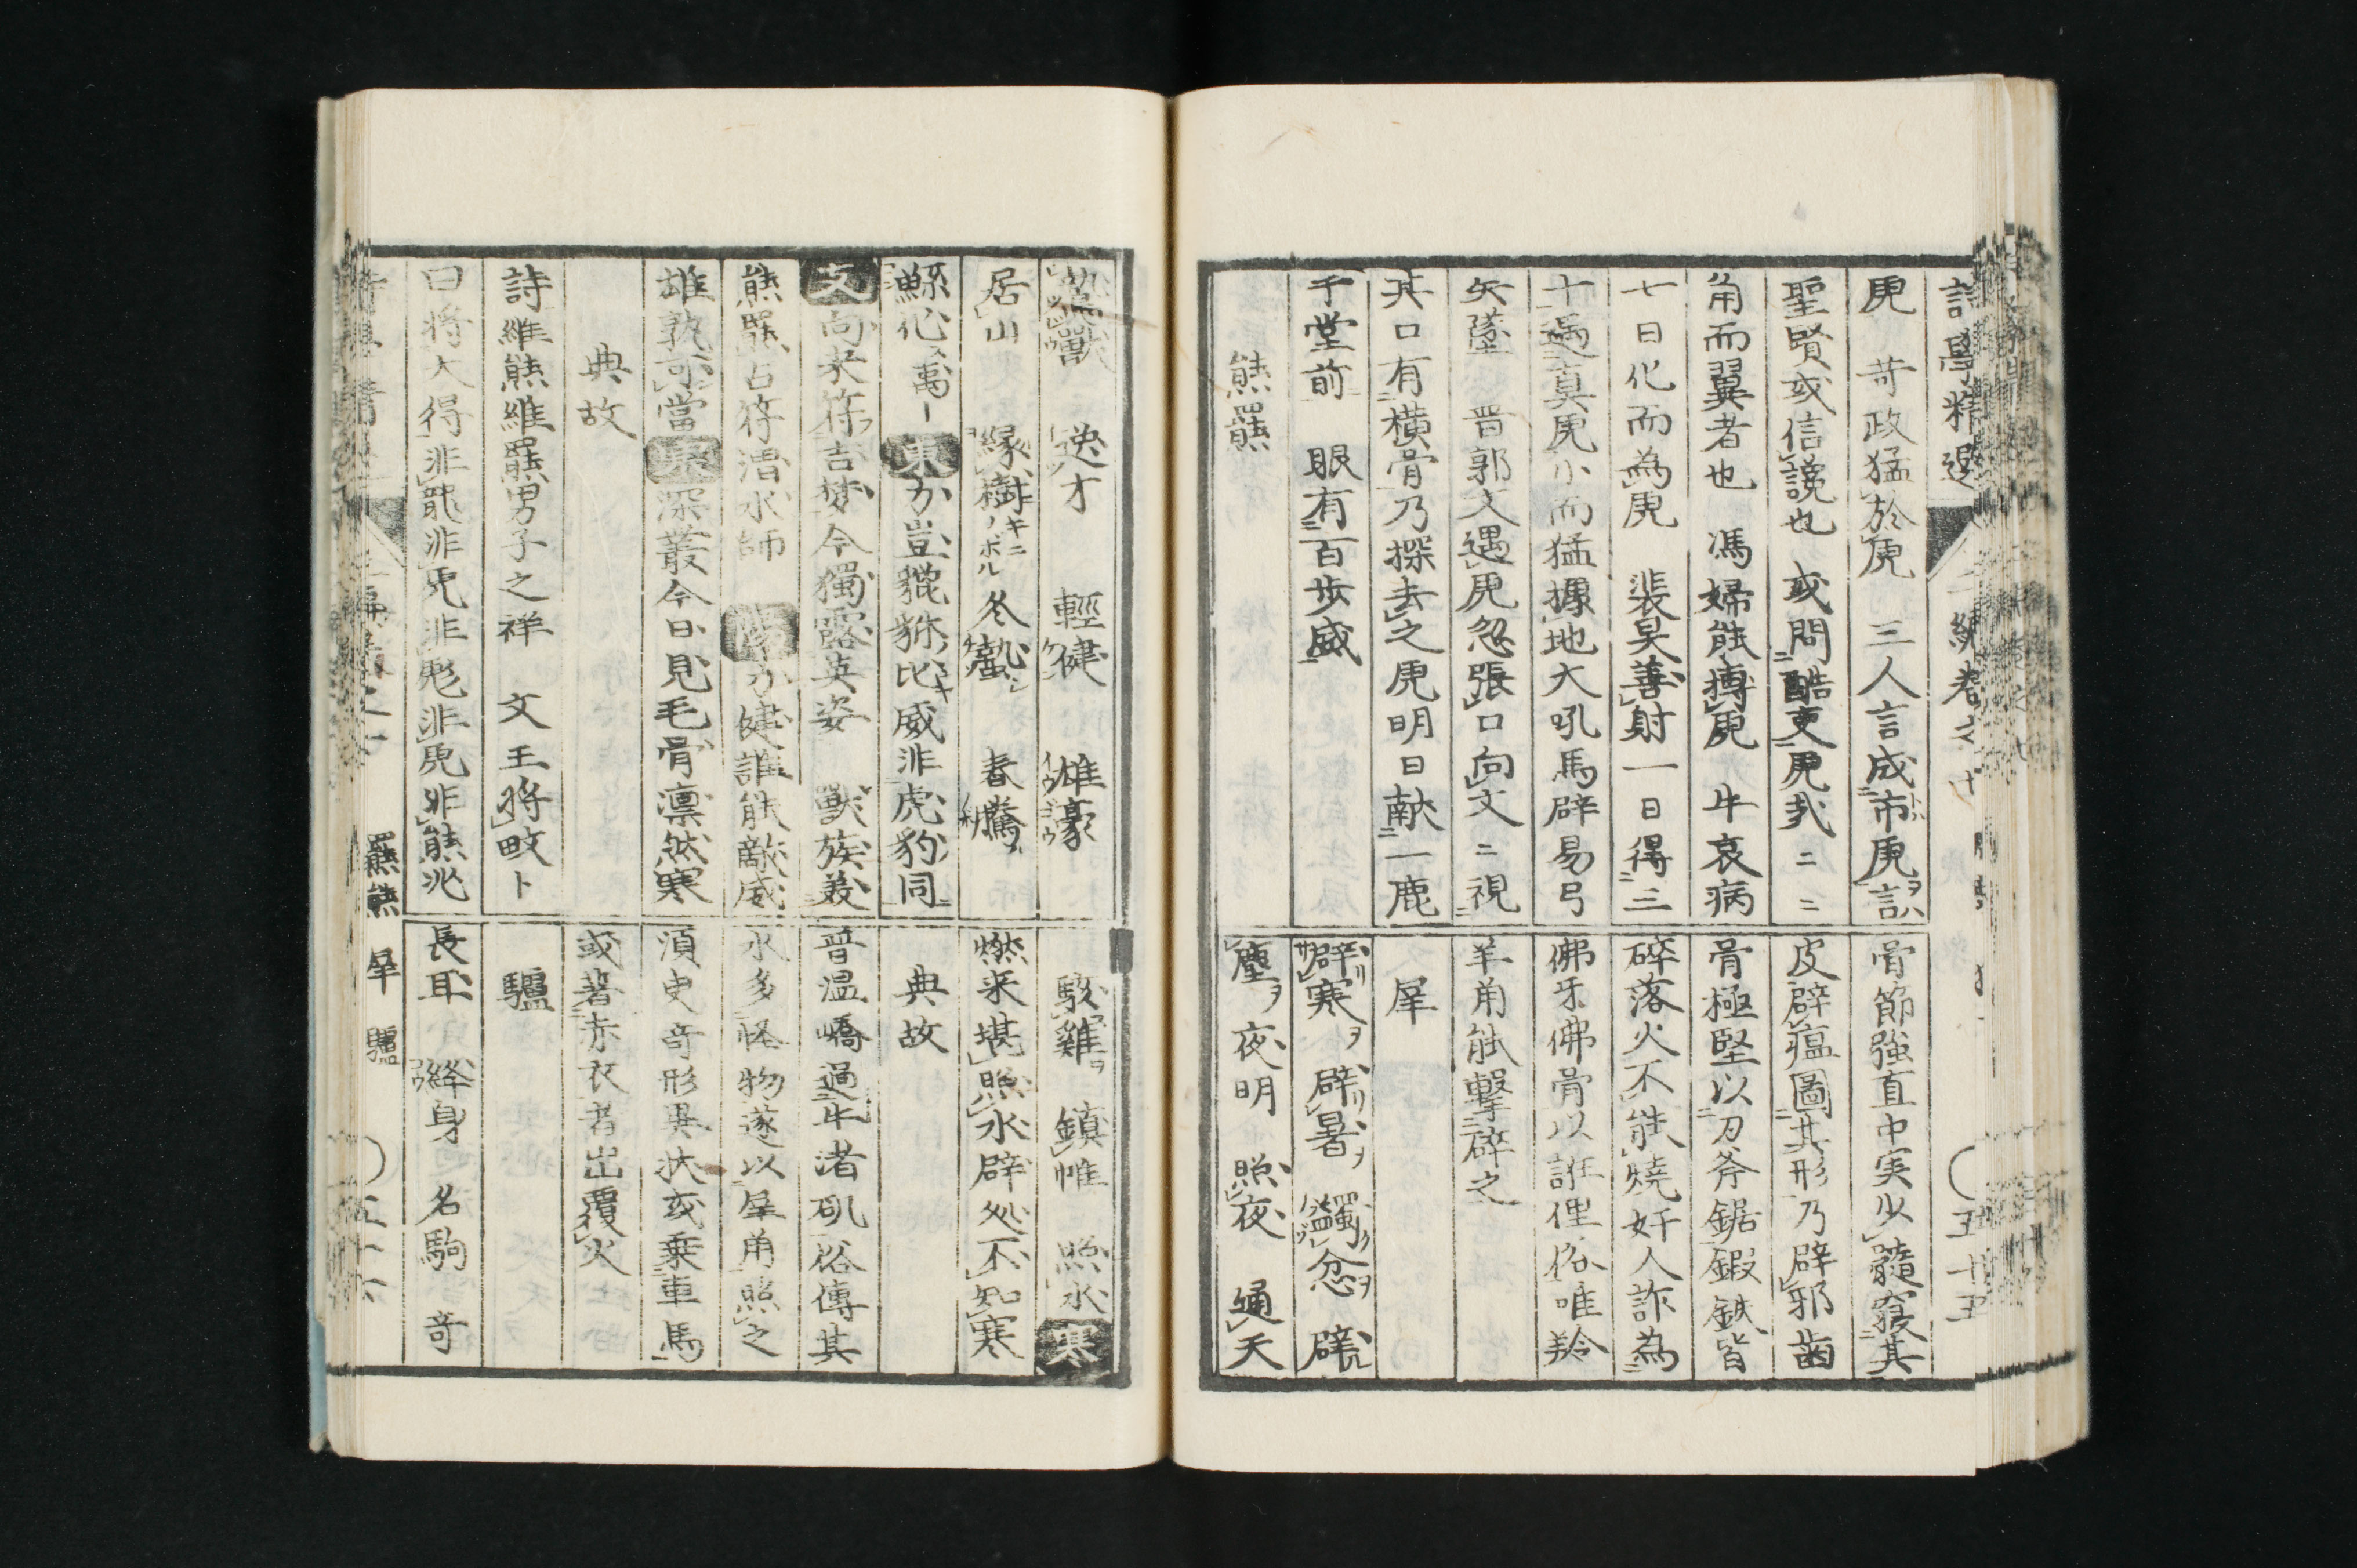 詩學精選 二編卷之下
虎 苛政猛於虎 三人言成市虎 言
聖賢或信讒也 或問酷吏虎哉ニニ
角而翼者也 馮婦能搏虎 牛哀病
七日化而為虎 裴旻善射一日得三
十遇真虎小而猛據地大吼馬辟易弓
矢墜 晋郭文遇虎忽張口向文ニ視
其口有横骨乃探去之虎明日献一鹿
于堂前 眼有百歩威
熊羆
骨節強直中実少髓寝其
皮辟瘟圖其形乃辟邪歯
骨極堅以刀斧鋸鍛鉄皆
碎落火不能燒奸人詐為
佛牙佛骨以誑俚俗唯羚
羊角能擊碎之
犀
辟寒 辟暑 蠲忿 辟
塵 夜明 照夜 通天
五十五
蟄獸 逸才 輕健 雄豪
居山 縁樹 冬蟄 春騰
鯀化 東 力豈貔貅比威非虎豹同
文 向来符吉梦今獨露英姿 獸族羙
熊羆占符渭水師 力健誰能敵威
雄孰可當 深叢今日見毛骨凛然寒
典故
詩維熊維羆男子之祥 文王将畋卜
曰将大得非羆非兕非彪非虎非熊兆
駭雞 鎮帷 照水 寒
燃来堪照水辟処不知寒
典故
晋温嶠過牛渚磯俗傳其
水多怪物遂以犀角照之
湏臾奇形異状或乗車馬
或著赤衣者出覆火
驢
長耳 絳身 名駒 奇
羆熊 犀 驢
五十六